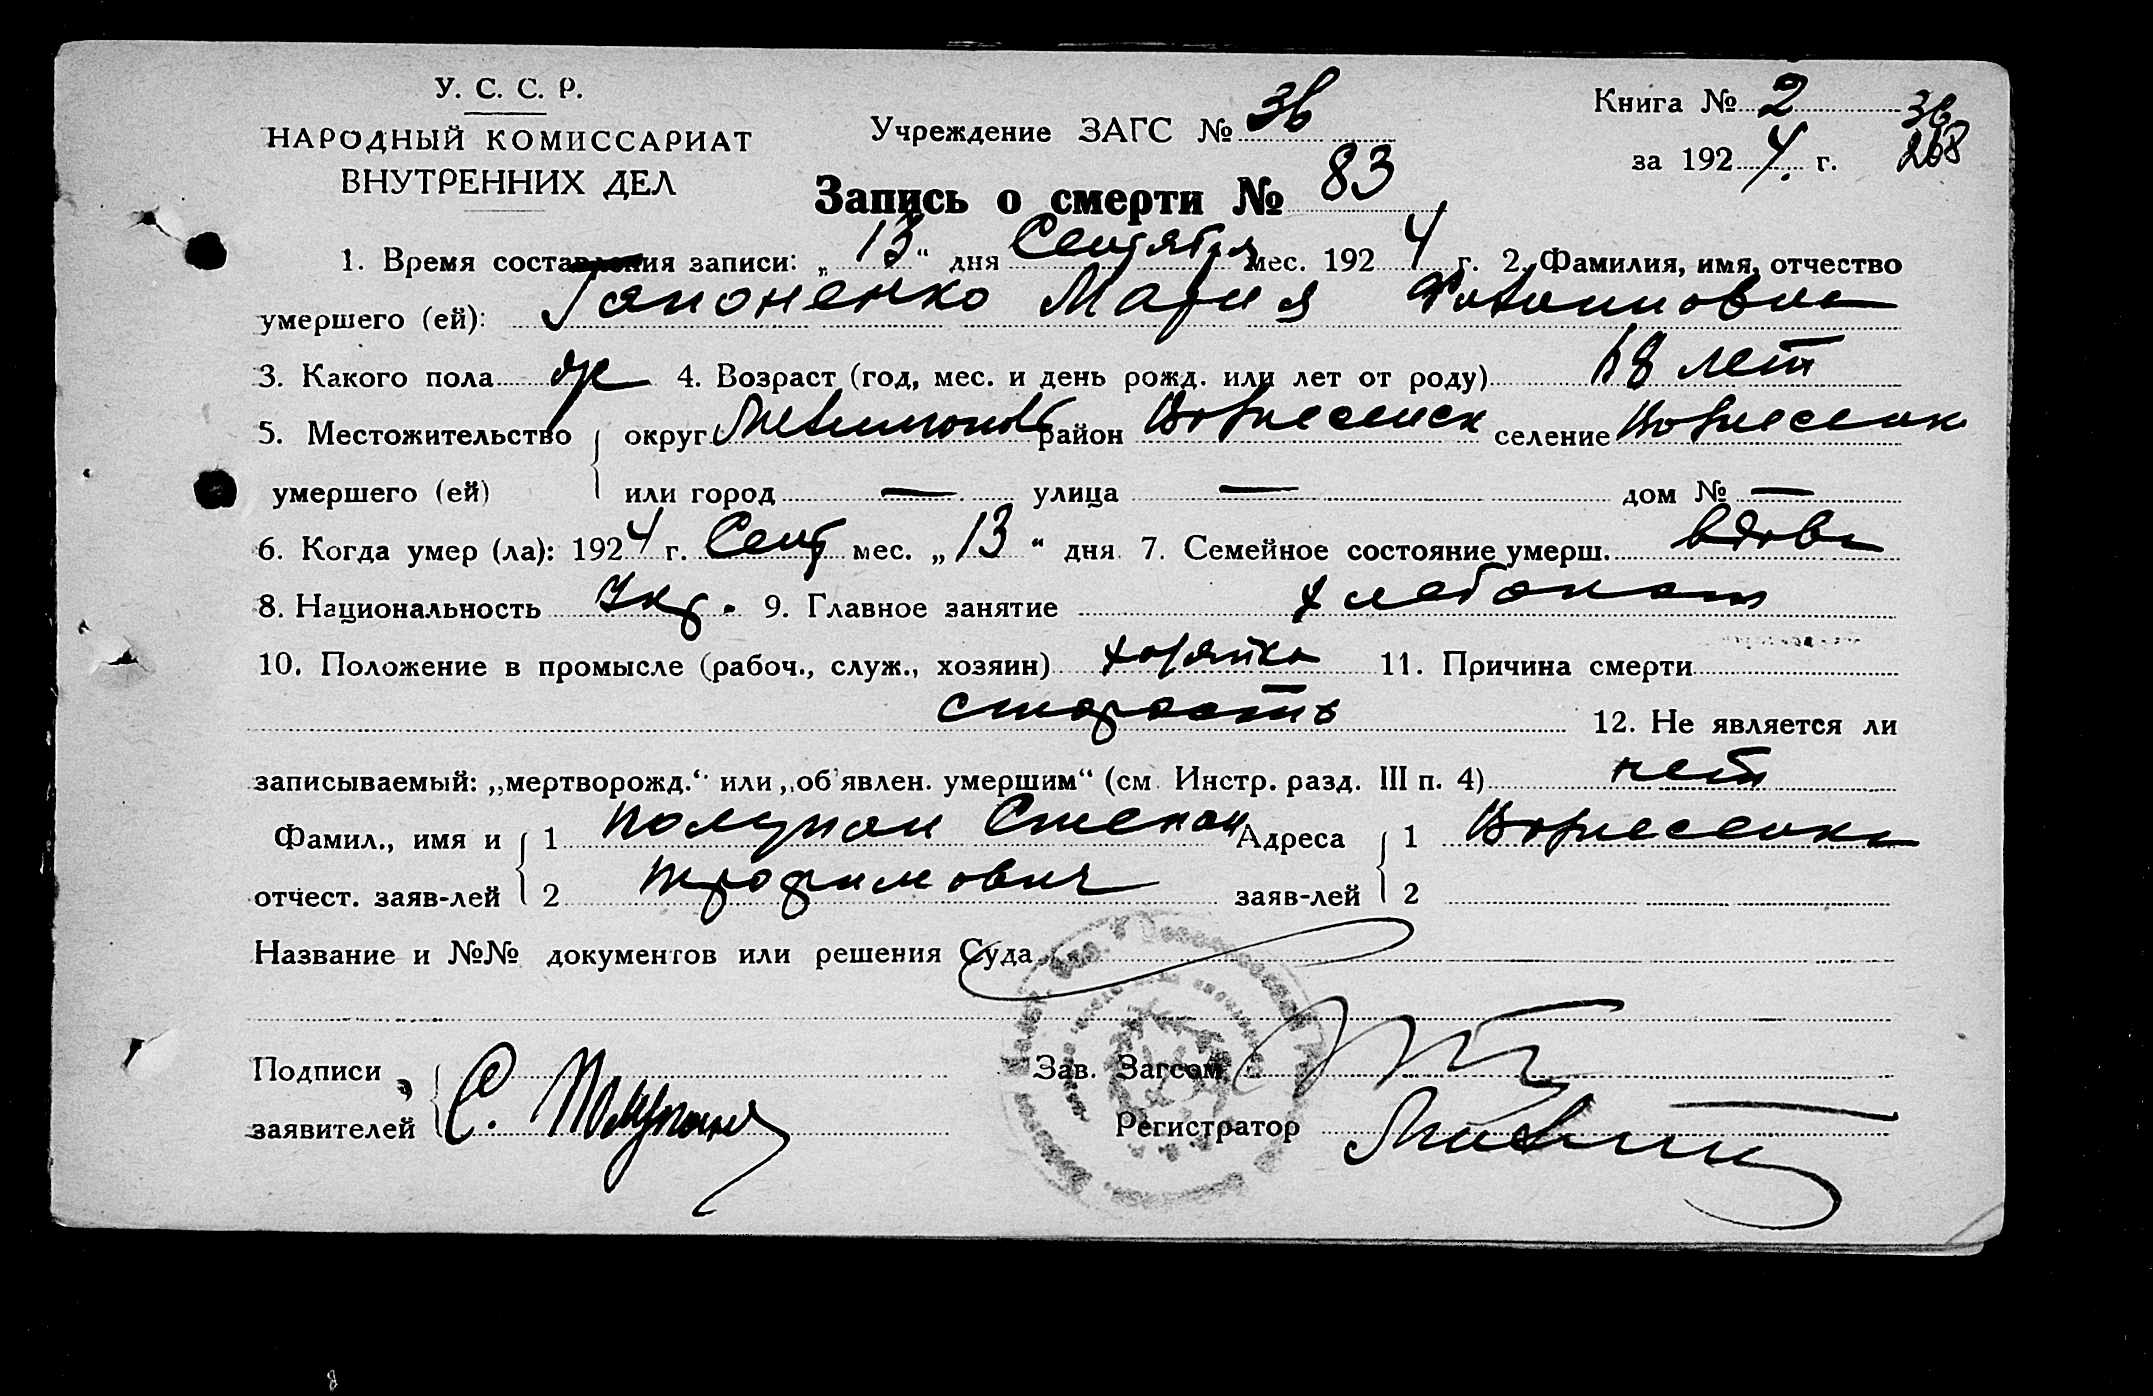 У. С. С. Р.
НАРОДНЫЙ КОМИССАРИАТ
ВНУТРЕННИХ ДЕЛ
Учреждение ЗАГС № 36
Книга № 2
36
за 1924 г.
268
Запись о смерти № 83
1. Время составления записи: „13“ дня Сентября мес. 1924 г. 2. Фамилия, имя, отчество
умершего (ей): Гапоненко Мария
3. Какого пола ж 4. Возраст (год, мес. и день рожд. или лет от роду) 68 лет
5. Местожительство округ район Вознесенск селение Вознесенк
умершего (ей) или город — улица — дом № —
6. Когда умер (ла): 1924 г. Сент мес. „13“ дня 7. Семейное состояние умерш. вдова
8. Национальность Укр. 9. Главное занятие хлебопаш
10. Положение в промысле (рабоч., служ., хозяин) хозяйка 11. Причина смерти
старость 12. Не является ли
записываемый: „мертворожд.“ или „об'явлен. умершим“ (см. Инстр. разд. III п. 4) нет
Фамил., имя и 1 Полупан Степан Адреса 1 Вознесенка
отчест. заяв-лей 2 Трофимович заяв-лей 2
Название и №№ документов или решения Суда
Подписи Зав. Загсом
заявителей С. Полупан Регистратор